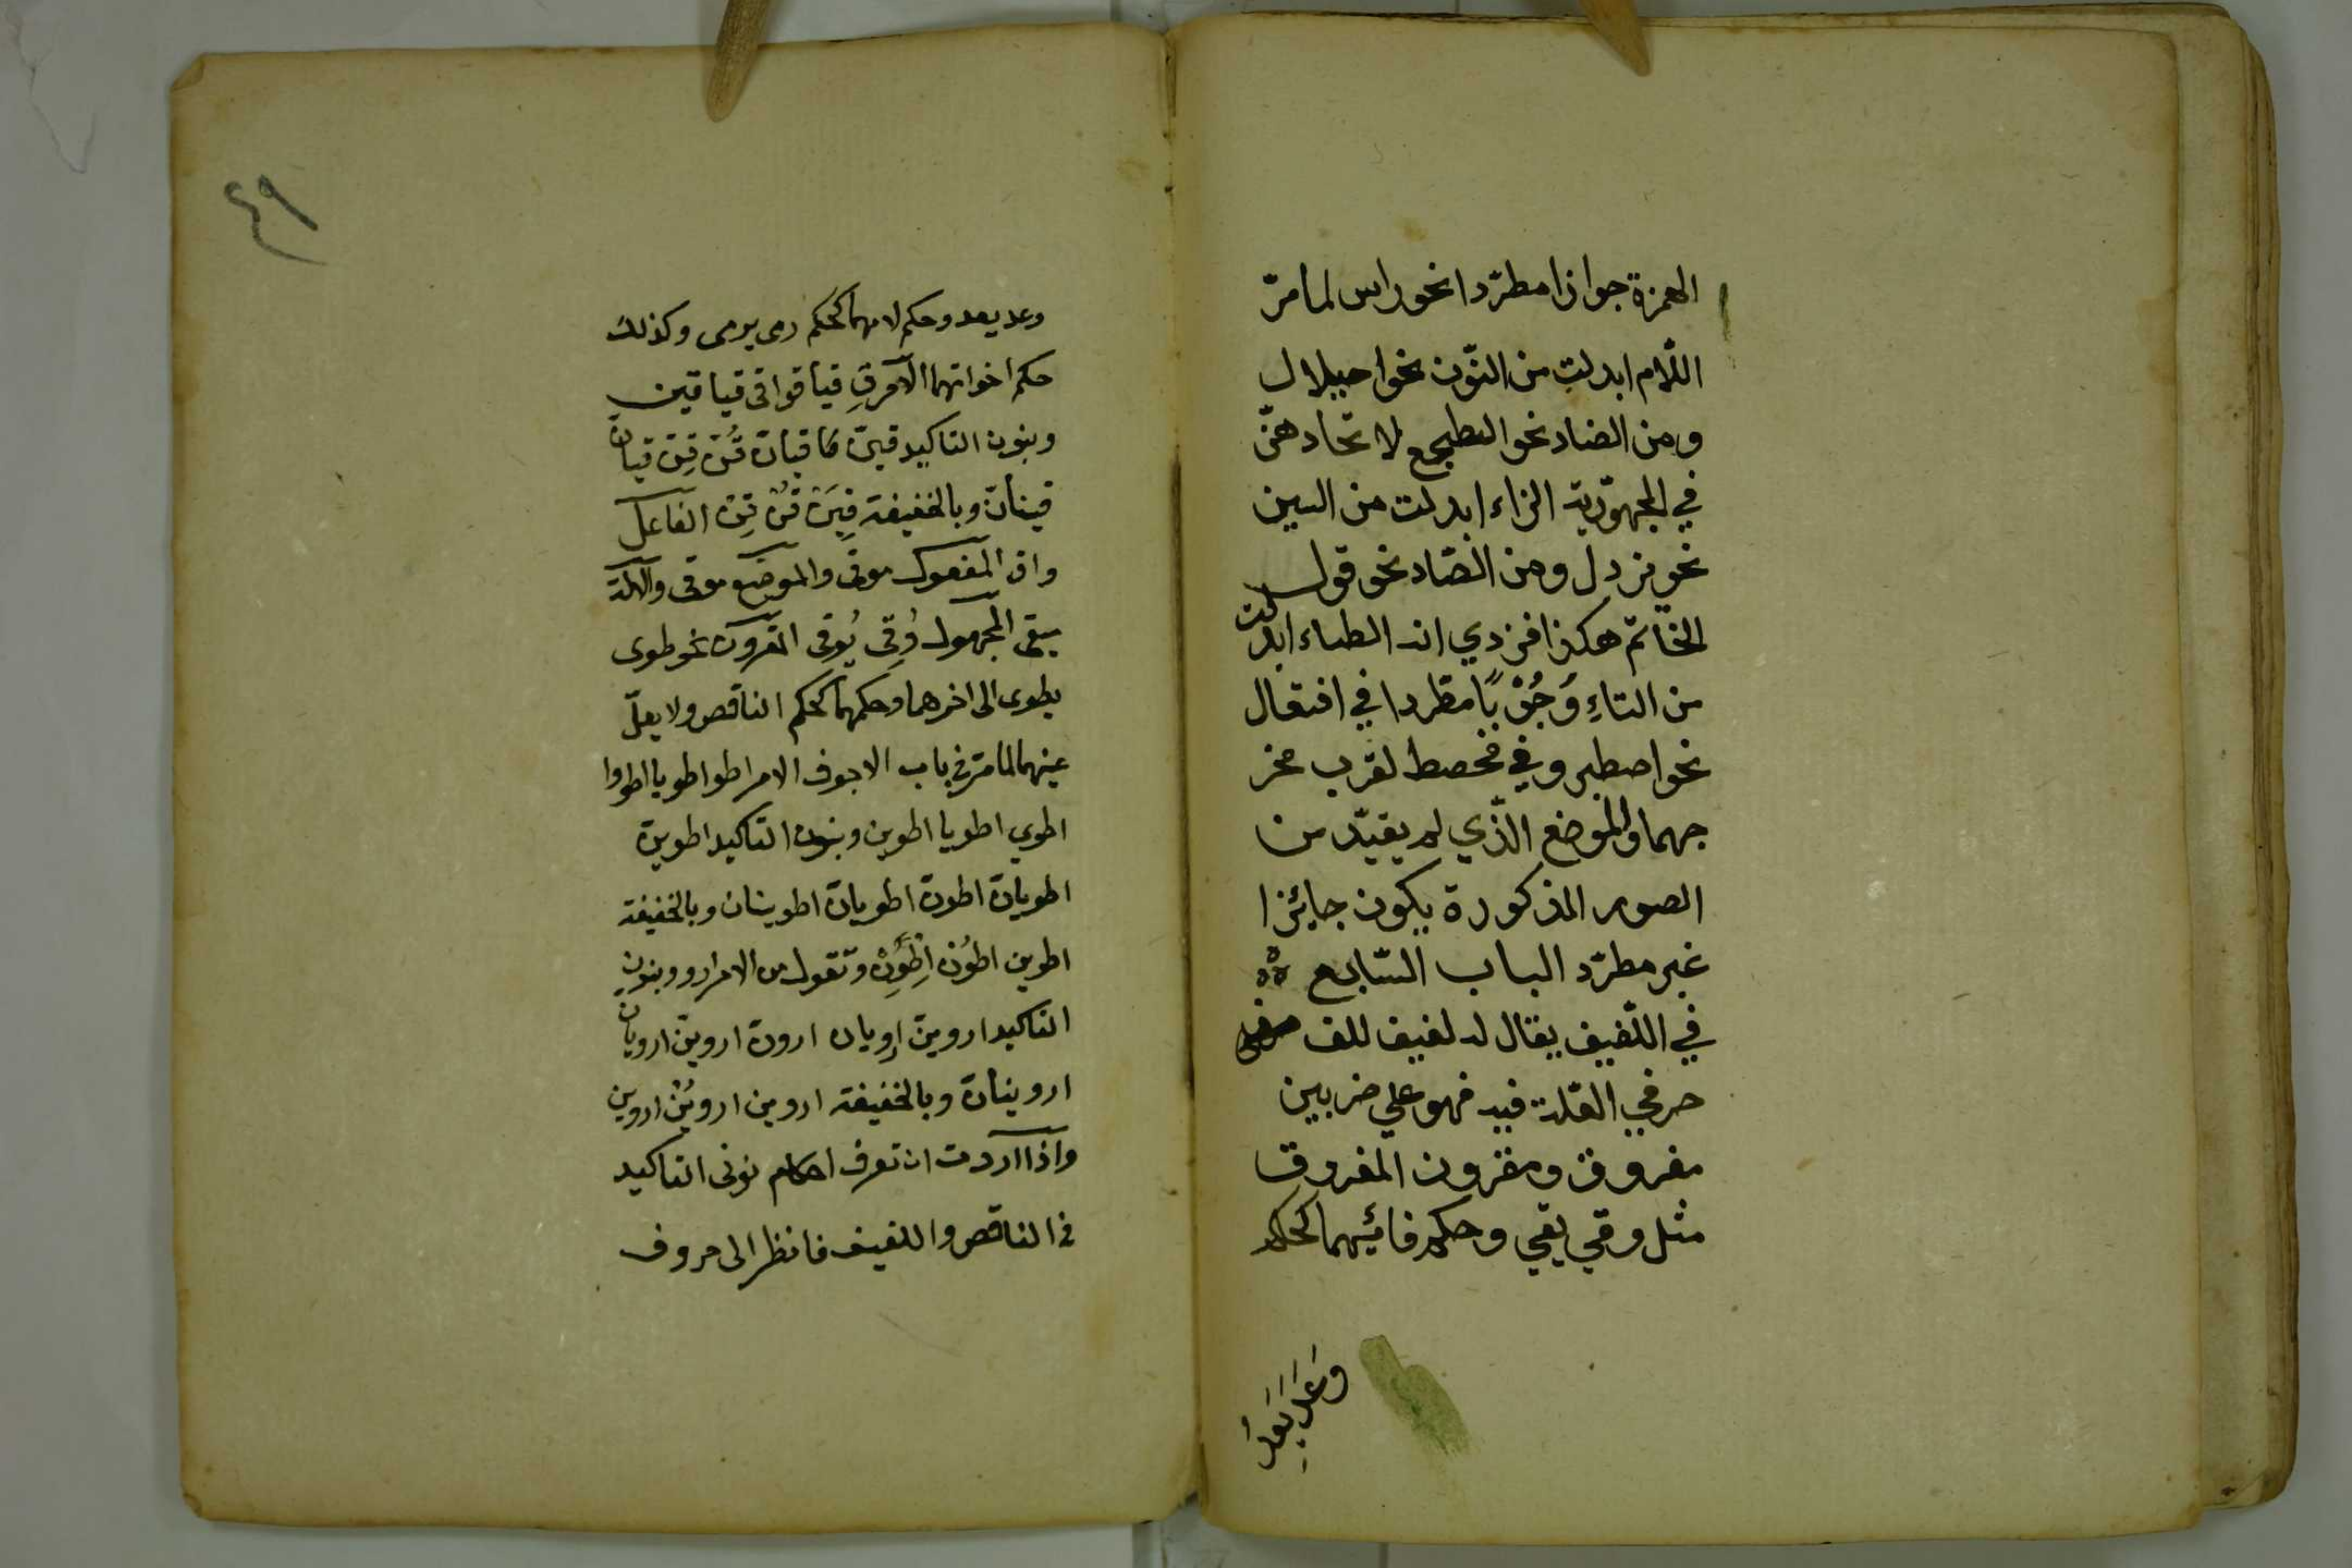 الهمزة جوازا مطرّدا نحو راس لما مرّ
اللّام ابدلت من النّون نحو اصيلال
ومن الضاد نحو الطجع لاتحادهنّ
في المجهوّرية الزاء ابدلت من السين
نحو يزدل ومن الصّاد نحو قول
الخاتم هكذا فزدي انه الطاء ابدلت
من التاءِ وَجُوْبًا مطّردا في افتعال
نحو اصطبر وفي فحصط لقرب مخر
جهما والموضع الذّي لم يقيّد من
الصور المذكورة يكون جايئزا
غير مطرّد الباب السّابع
في اللّفيف يقال له لفيف للف
حرفي العّلة فيه فهو علي ضربين
مفروق ومقرون المفروق
مثل وقي يقي وحكم فائيهما كحكم
وَعَدَ يَعِدُ
٤٩
وعد يعد وحكم لامهما كحكم رمى يرمى وكذلك
حكم اخواتهما الآمر قِ قيا قوا قى قيا قين
وبنون التاكيد قينّ قيانّ قُنّ قِنّ قيانّ
قينانّ وبالخفيفة قِيَنْ قُنْ قِنْ الفاعل
واق المفعول موقى والموضع موقى والآلة
ميقى المجهول وُقِى يُوقى المقرون نحو طوى
يطوى الى اخرهما وحكمهما كحكم الناقص ولا يعلّ
عينهما لما مرّ في باب الاجوف الامر اطو اطويا اطووا
اطوي اطويا اطوين وبنون التاكيد اطوينّ
اطويانّ اطونّ اطويانّ اطوينان وبالخفيفة
اطوين اطوُن اِطْوِنْ وتقول من الامر ارو وبنون
التاكيد اروينّ اِرويان ارونّ اروينّ ارويانّ
اروينانّ وبالخفيفة اروين اروُنْ اروين
واذا اردت ان تعرف احكام نونى التاكيد
فى الناقص واللفيف فانظر الى حروف